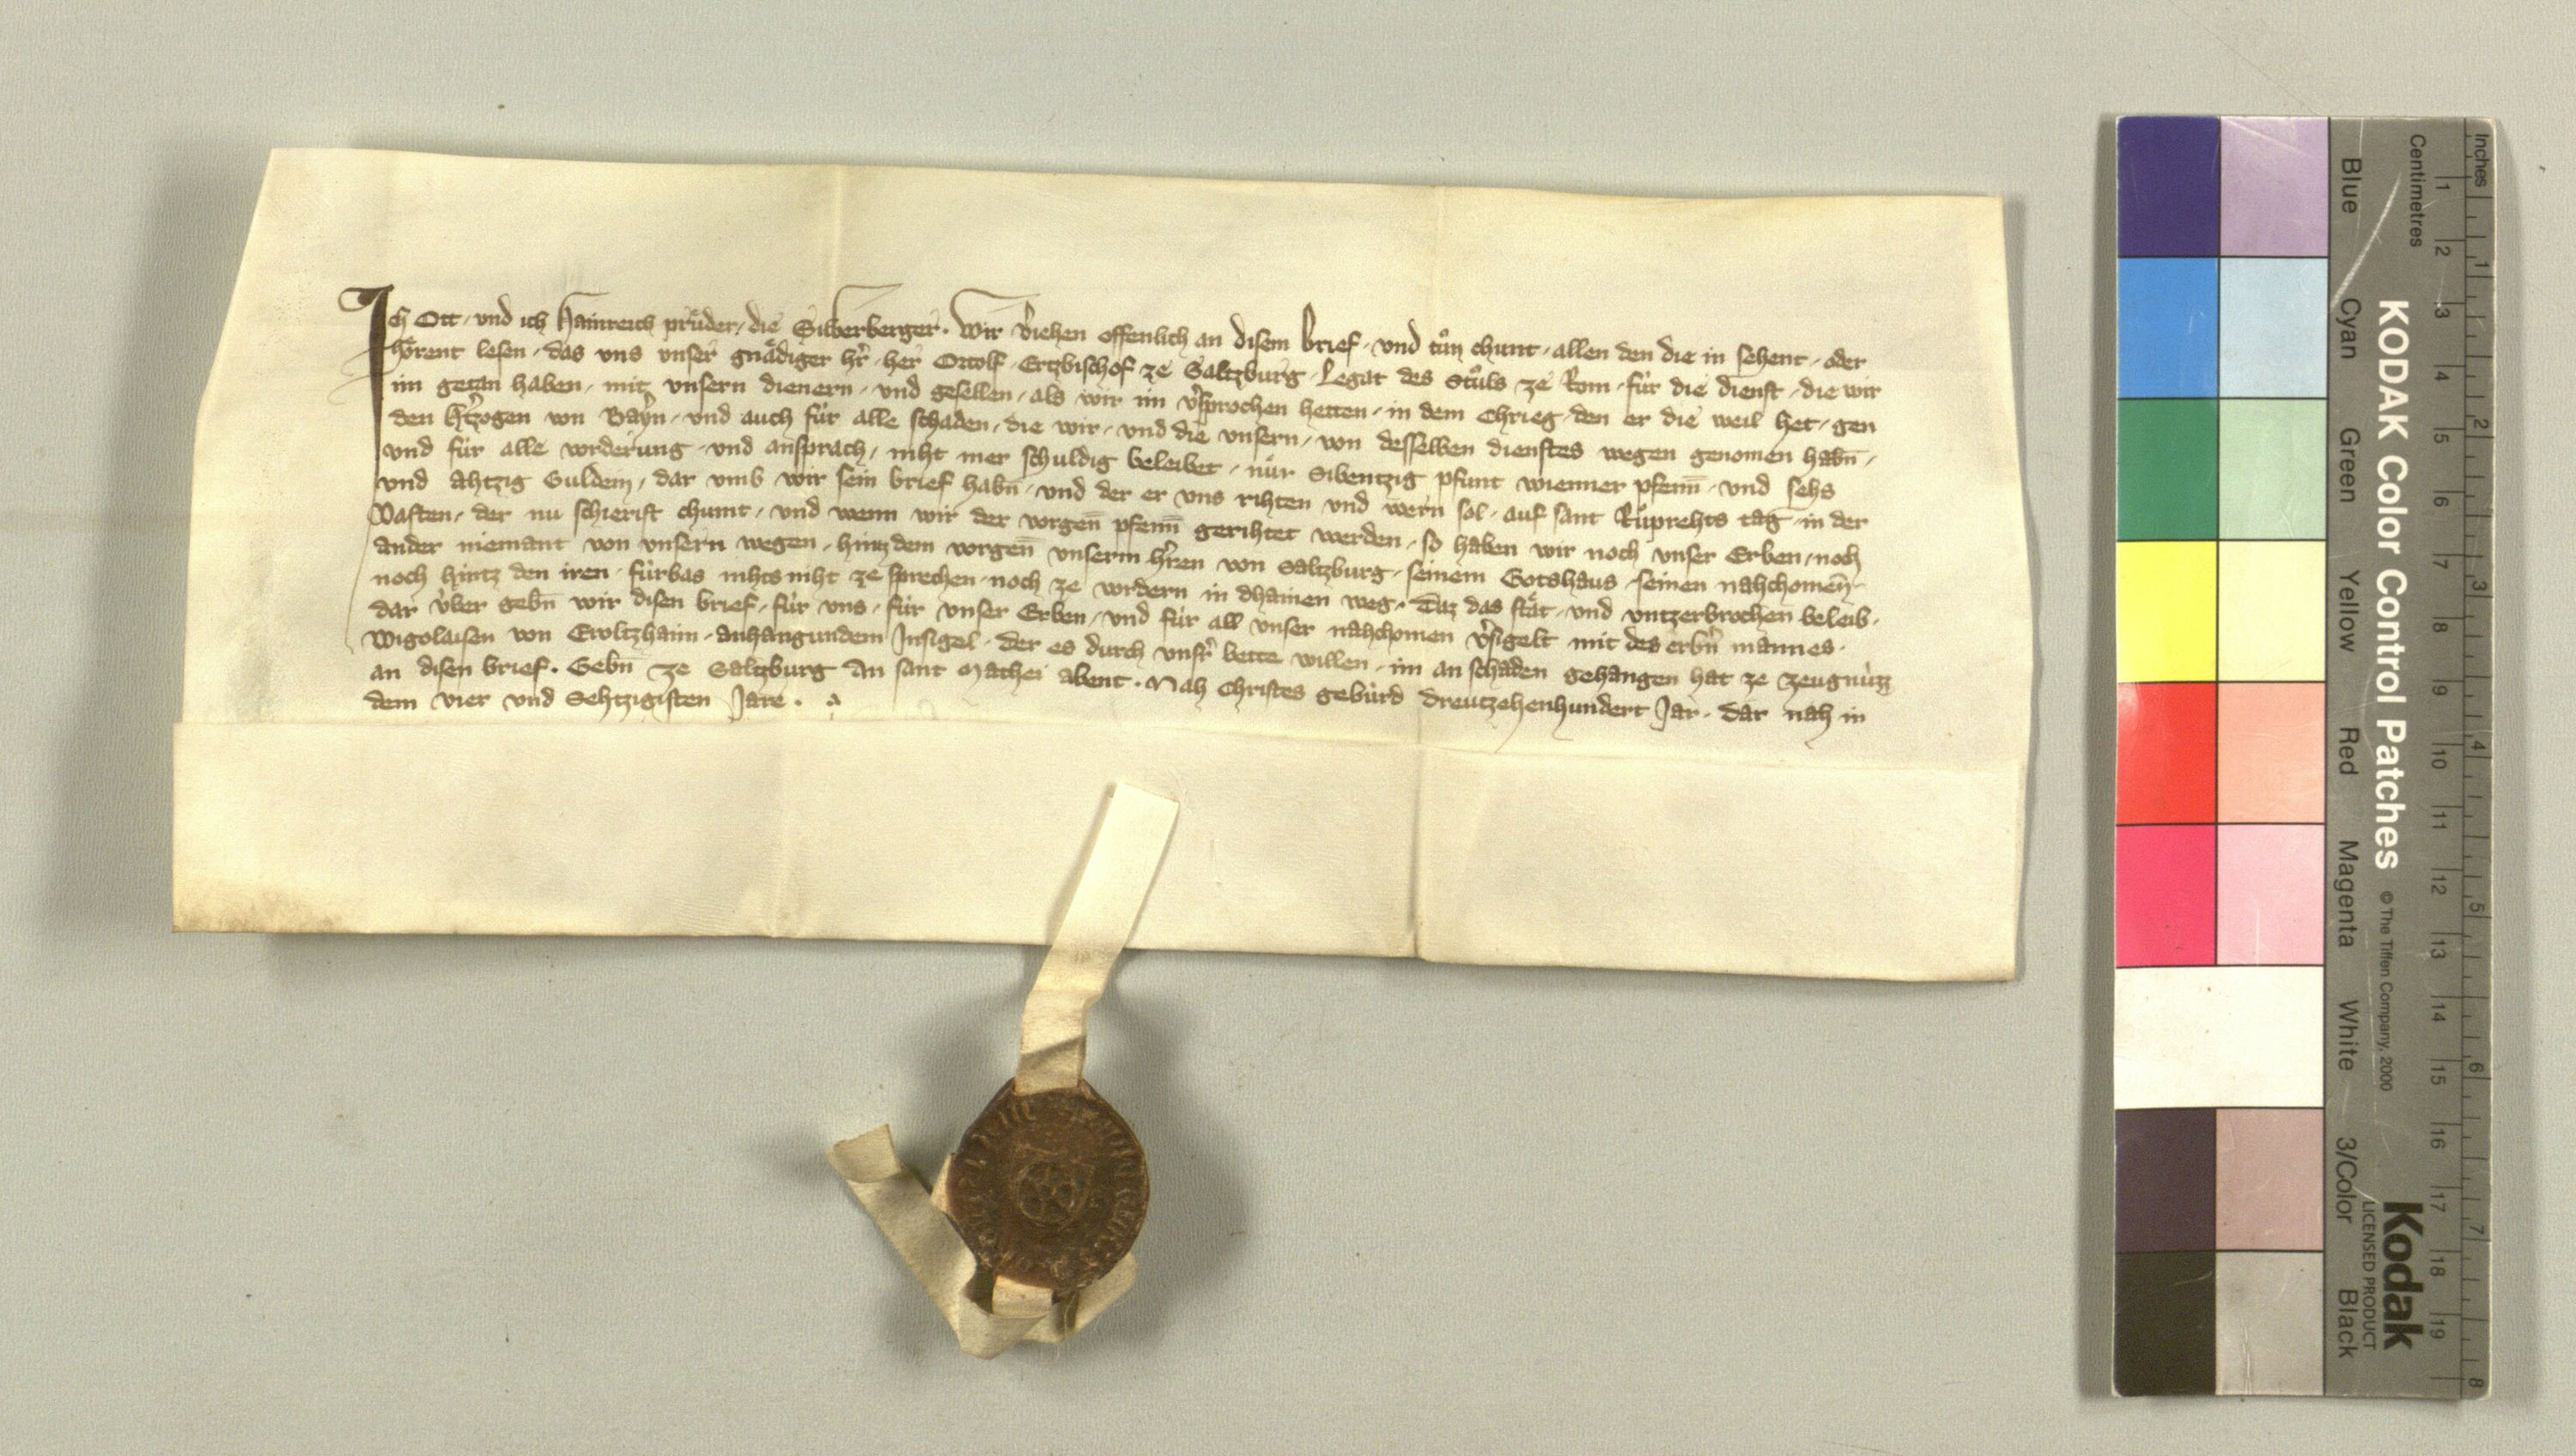 Ich Ott · und ich Hainreich průder · die Silberberger · Wir v̓iehen offenlich an disem brief · und tůn chunt · allen den die in sehent · oder
hőrent lesen · das uns unser gnådiger hr̓ · her Ortolf · Ertzbischof ze Saltzburg · Legat des Stůls ze Rom · fůr die dienst · die wir
im getan haben · mit unsern dienern · und gesellen · als wir im v̓sprochen hetten · in dem Chrieg · den er die weil het · gen
den H̓tzogen von Bay̓n · und auch fůr alle schaden · die wir · und die unsern · von desselben dienstes wegen genomen habn̄ ·
und fůr alle vorderung · und ansprach · niht mer schuldig beleibet · nůr Sibentzig pfunt wienner pfenn̄ · und sehs
und Ahtzig Guldein · dar umb wir sein brief habn̄ · und der er uns rihten und wern sol · auf sant Růprehts tag · in der
Vasten · der nu schierist chumt · und wenn wir der vorgen̄ pfenn̄ gerihtet werden · so haben wir noch unser Erben · noch
ander niemant von unsern wegen · hintz dem vorgen̄ unserm hr̓en von Saltzburg · seinem Gotshaus · seinen nahchomen̄ ·
noch hintz den iren · fůrbas nihts niht ze sprechen · noch ze vordern in dhainen weg · Daz das ståt · und untzerbrochen beleib ·
dar ůber gebn̄ wir disen brief · fůr uns · fůr unser Erben · und fůr all unser nahchomen v̓sigelt mit des erbn̓ mannes ·
Wigolaisen von Eroltzhaim · anhangundem Insigel · der es durch unsr̓ bette willen · im an schaden gehangen hat ze zeugnůzz
an disen brief · Gebn̄ ze Saltzburg An sant Mathei abent · Nah Christes gebůrd Dreutzehenhundert Jar · dar nah in
dem vier und Sehtzigisten Jare ·
KODAK Color Control Patches © The Tiffen Company, 2000
Kodak
LICENSED PRODUCT
Blue Cyan Green Yellow Red Magenta White 3/Color Black
Centimetres 1 2 3 4 5 6 7 8 9 10 11 12 13 14 15 16 17 18 19
Inches 1 2 3 4 5 6 7 8